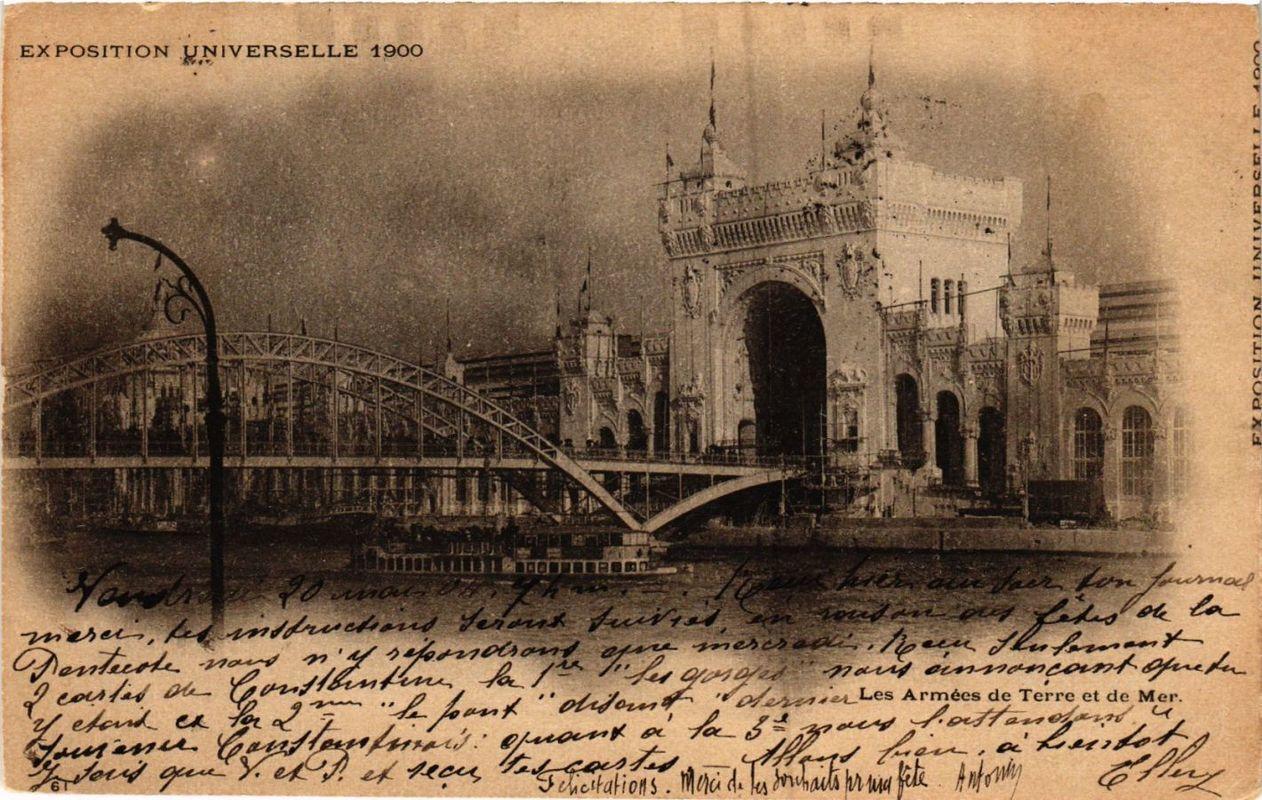 EXPOSITION UNIVERSELLE 1900
EXPOSITION UNIVERSELLE 1900
Vendredi 20 mai 04. 7 h m. - . Reçu hier au soir ton journal
merci, tes instructions seront suivies, en raison des fêtes de la
Pentecote nous n'y répondrons que mercredi. Reçu seulement
2 cartes de Constantine la 1re "les gorges" nous annonçant que tu
Les Armées de Terre et de Mer.
y etais et la 2me "le pont" disant "dernier
souvenir Constantinois: quant à la 3e nous l'attendons
Je sais que V. et P. et reçu tes cartes. Allons bien, à bientot
Felicitations. Merci de tes souhaits pr ma fête. Antony
61